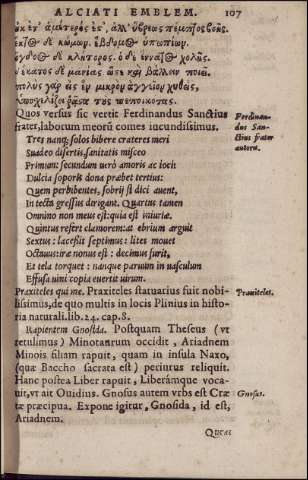 ALCIATI EMBLEM. 107
οὐκ ἔτ' ἀμέτερός ἐσ', ἀλλ' ὕβρεως πέμπτος βοῆς
ἕκτος δὲ κώμων. ἕβδομος ὑπωπίων.
ὄγδοος δὲ κλήτορος. ὁ δὲ ἔννατος χολῆς.
δέκατος δὲ μανίας ὥστε καὶ βάλλειν ποιεῖ.
πολὺς γὰρ εἰς ἓν μικρὸν ἀγγεῖον χυθεὶς,
ὑποσκελίζει ῥᾷστα τοὺς πεπωκότας.
Quos versus sic vertit Ferdinandus Sanctius
frater, laborum meorũ comes iucundissimus.
Ferdinan-
dus San-
ctius frater
autoris.
Tres nanq; solos bibere crateres meri
Suadeo disertis, sanitatis misceo
Primum: secundum verò amoris ac ioci:
Dulcia soporis dona præbet tertius:
Quem perbibentes, sobrij si dici auent,
In tecta gressus dirigant. Quartus tamen
Omnino non meus est: quia est iniuriæ.
Quintus refert clamorem: at ebrium arguit
Sextus: lacessit septimus: lites mouet
Octauus: iræ nonus est: decimus furit,
Et tela torquet: nanque paruum in vasculum
Effusa uini copia euertit uirum.
Praxiteles qui me. Praxiteles statuarius fuit nobi-
lissimus, de quo multis in locis Plinius in histo-
ria naturali. lib. 24. cap. 8.
Praxiteles.
Rapientem Gnosida. Postquam Theseus (vt
retulimus) Minotaurum occidit, Ariadnem
Minois filiam rapuit, quam in insula Naxo,
(quæ Baccho sacrata est) periurus reliquit.
Hanc postea Liber rapuit, Liberámque voca-
uit, vt ait Ouidius. Gnosus autem vrbs est Cræ
tæ præcipua. Expone igitur, Gnosida, id est,
Ariadnem.
Gnosus.
Quæas